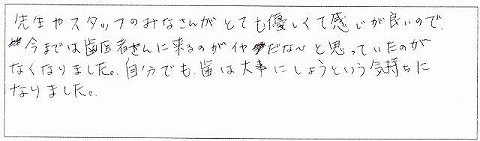 先生やスタッフのみなさんがとても優しくて感じが良いので、
今までは歯医者さんに来るのがイヤだな〜と思っていたのが
なくなりました。自分でも歯は大事にしようという気持ちに
なりました。